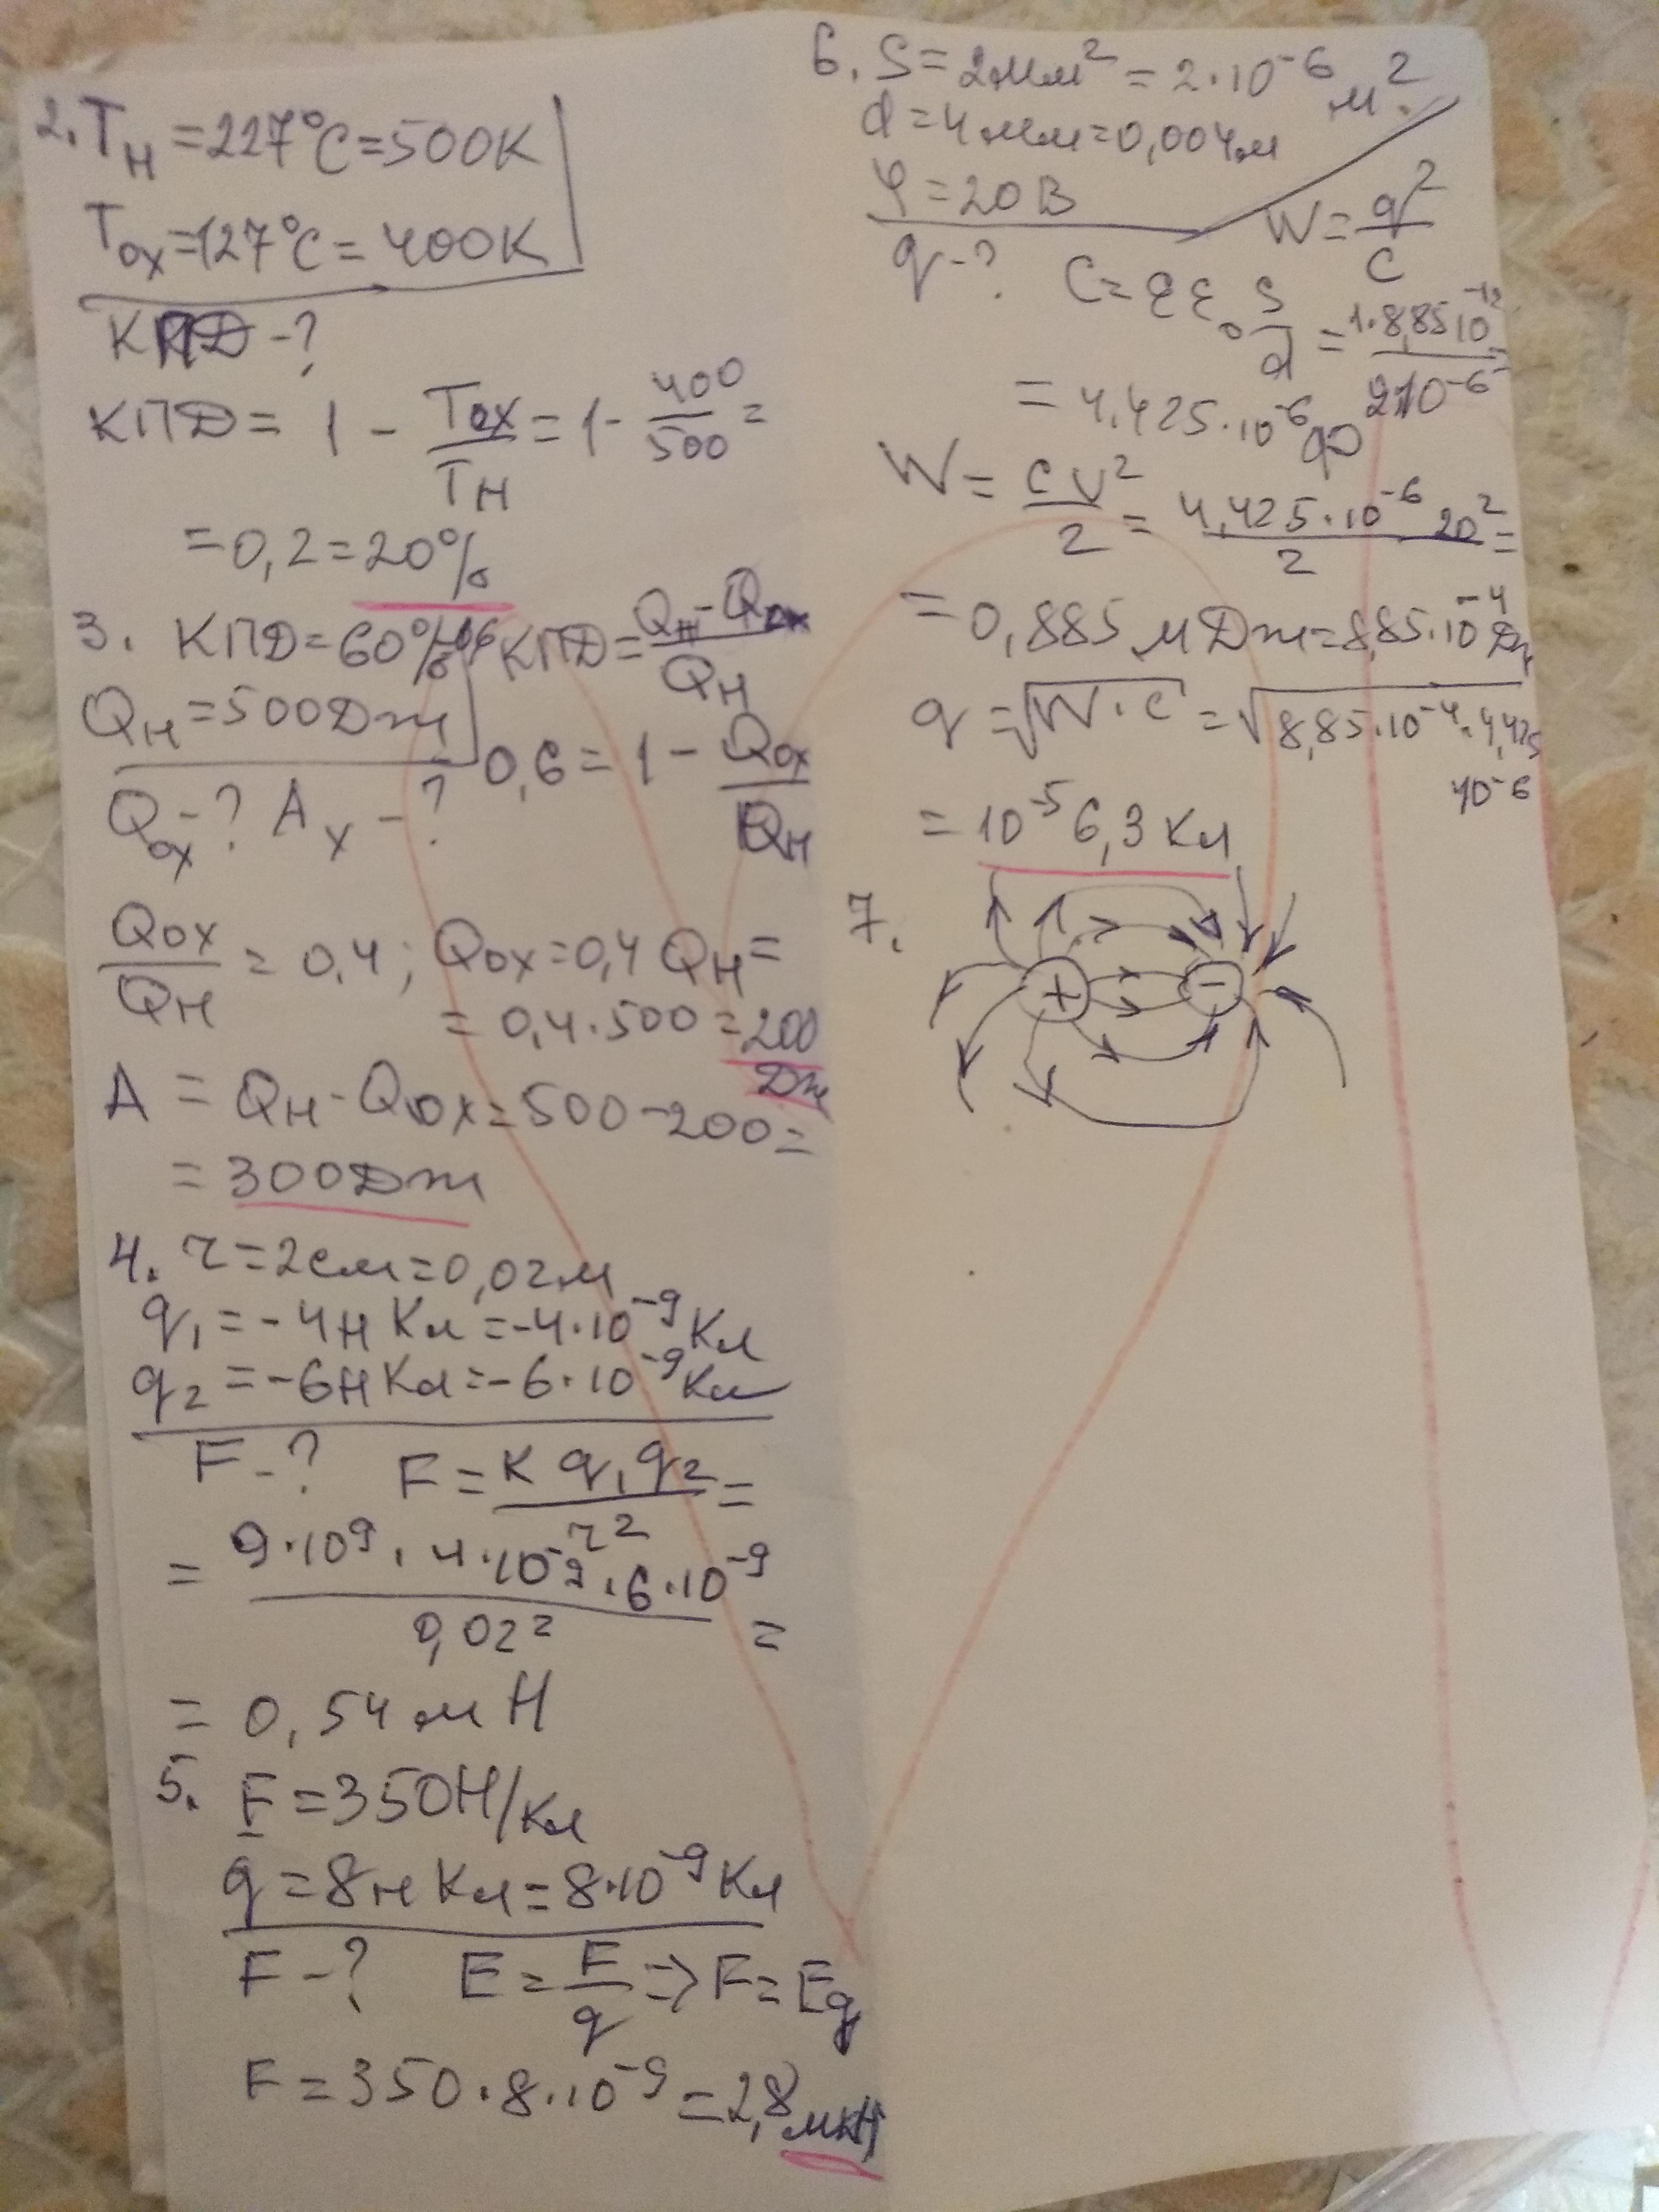 2. Tн = 227°C = 500К
Tох = 127°C = 400К
КПД - ?
КПД = 1 - Tох/Tн = 1 - 400/500 =
= 0,2 = 20%
3. КПД = 60% = 0,6 КПД = (Qн - Qох)/Qн
Qн = 500Дж
0,6 = 1 - Qох/Qн
Qох - ? Aх - ?
Qох/Qн = 0,4; Qох = 0,4 Qн =
= 0,4 · 500 = 200 Дж
A = Qн - Qох = 500 - 200 =
= 300Дж
4. r = 2см = 0,02м
q₁ = -4н Кл = -4·10⁻⁹ Кл
q₂ = -6н Кл = -6·10⁻⁹ Кл
F - ? F = к q₁q₂/r² =
= 9·10⁹ · 4·10⁻⁹ · 6·10⁻⁹/0,02² =
= 0,54 мН
5. F = 350Н/Кл
q = 8н Кл = 8·10⁻⁹ Кл
F - ? E = F/q => F = Eq
F = 350 · 8·10⁻⁹ = 2,8 мкН
6. S = 2мм² = 2·10⁻⁶ м²
d = 4мм = 0,004м
φ = 20В
q - ? W = q²/C
C = εε₀ S/d = 1·8,85 10⁻¹²/2·10⁻⁶ =
= 4,425·10⁻⁶ Ф
W = CU²/2 = 4,425·10⁻⁶ 20²/2 =
= 0,885 мДж = 8,85·10⁻⁴ Дж
q = √W·C = √8,85·10⁻⁴·4,425
·10⁻⁶
= 10⁻⁵ 6,3 Кл
7.
+ -